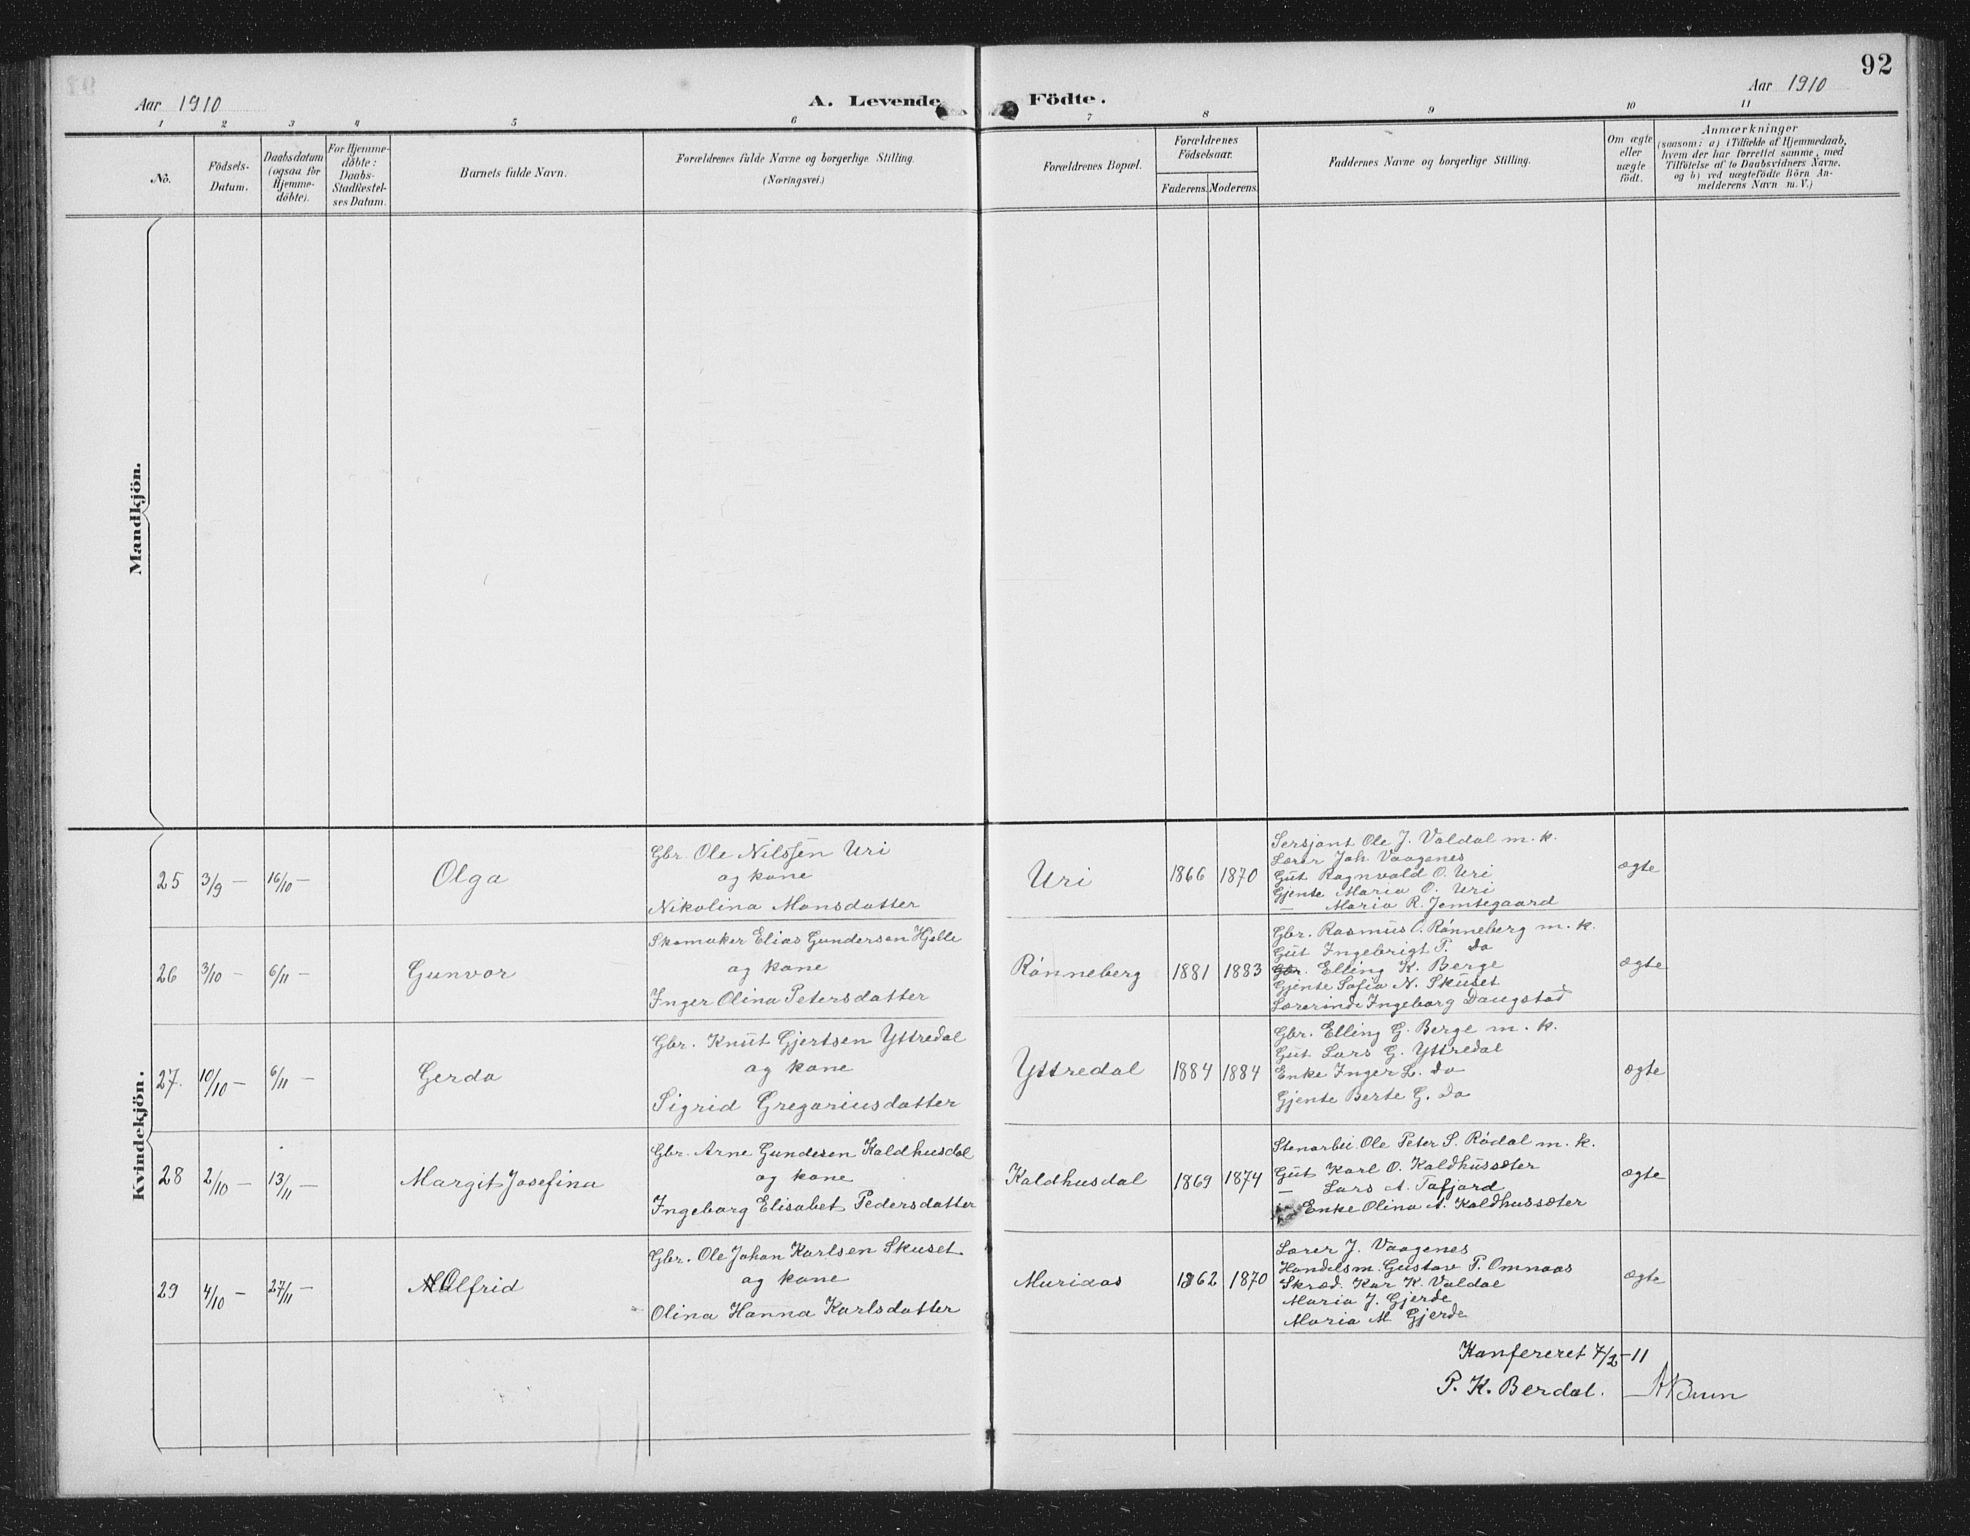 92
Aar 1910
A. Levende Födte.
Aar 1910
1 2 3 4 5 6 7 8 9 10 11
No.
Födsels-
Datum.
Daabsdatum
(ogsaa for
Hjemme-
döbte).
For Hjemme-
döbte:
Daabs-
Stadfæstel-
ses Datum.
Barnets fulde Navn.
Forældrenes fulde Navne og borgerlige Stilling.
(Næringsvei.)
Forældrenes Bopæl.
Forældrenes
Födselsaar.
Faderens. Moderens.
Faddernes Navne og borgerlige Stilling.
Om ægte
eller
uægte
födt.
Anmærkninger
(saasom: a) i Tilfælde af Hjemmedaab,
hvem der har forrettet samme, med
Tilföielse af to Daabsvidners Navne.
og b) ved uægtefödte Börn An-
melderens Navn m. V.)
Mandkjön.
Kvindekjön.
25 3/9 — 16/10 — Olga
Gbr. Ole Nilssen Uri
og kone
Nikolina Monsdatter
Uri 1866 1870
Sersjant Ole J. Valdal m. k.
Lærer Joh. Vaagenes
Gut Ragnvald O. Uri
Gjente Maria O. Uri
— Maria R. Jemtegaard
ægte
26 3/10 — 6/11 — Gunvor
Skomaker Elias Gundersen Hjelle
og kone
Inger Olina Petersdatter
Rønneberg 1881 1883
Gbr. Rasmus O. Rønneberg m. k.
Gut Ingebrigt P. do
Gbr. Elling K. Berge
Gjente Sofia N. Skuset
Lærerinde Ingeborg Daugstad
ægte
27. 10/10 — 6/11 — Gerda
Gbr. Knut Gjertsen Yttredal
og kone
Sigrid Gregoriusdatter
Yttredal 1884 1884
Gbr. Elling G. Berge m. k.
Gut Lars G. Yttredal
Enke Inger L. do
Gjente Berte G. do
ægte
28 2/10 — 13/11 — Margit Josefina
Gbr. Arne Gundesen Kaldhusdal
og kone
Ingeborg Elisabet Pedersdatter
Kaldhusdal 1869 1874
Stenarbei. Ole Peter S. Rødal m. k.
Gut Karl O. Kaldhussæter
— Lars A. Tafjord
Enke Olina A. Kaldhussæter
ægte
29 4/10 — 27/11 — Alfrid
Gbr. Ole Johan Karlsen Skuset
og kone
Olina Hanna Karlsdatter
Muriaas 1862 1870
Lærer J. Vaagenes
Handelsm. Gustav P. Omnaas
Skræd. Kar K. Valdal
Maria J. Gjerde
Maria M Gjerde
ægte
Konfereret 7/2-11
P. K. Berdal. A Brun